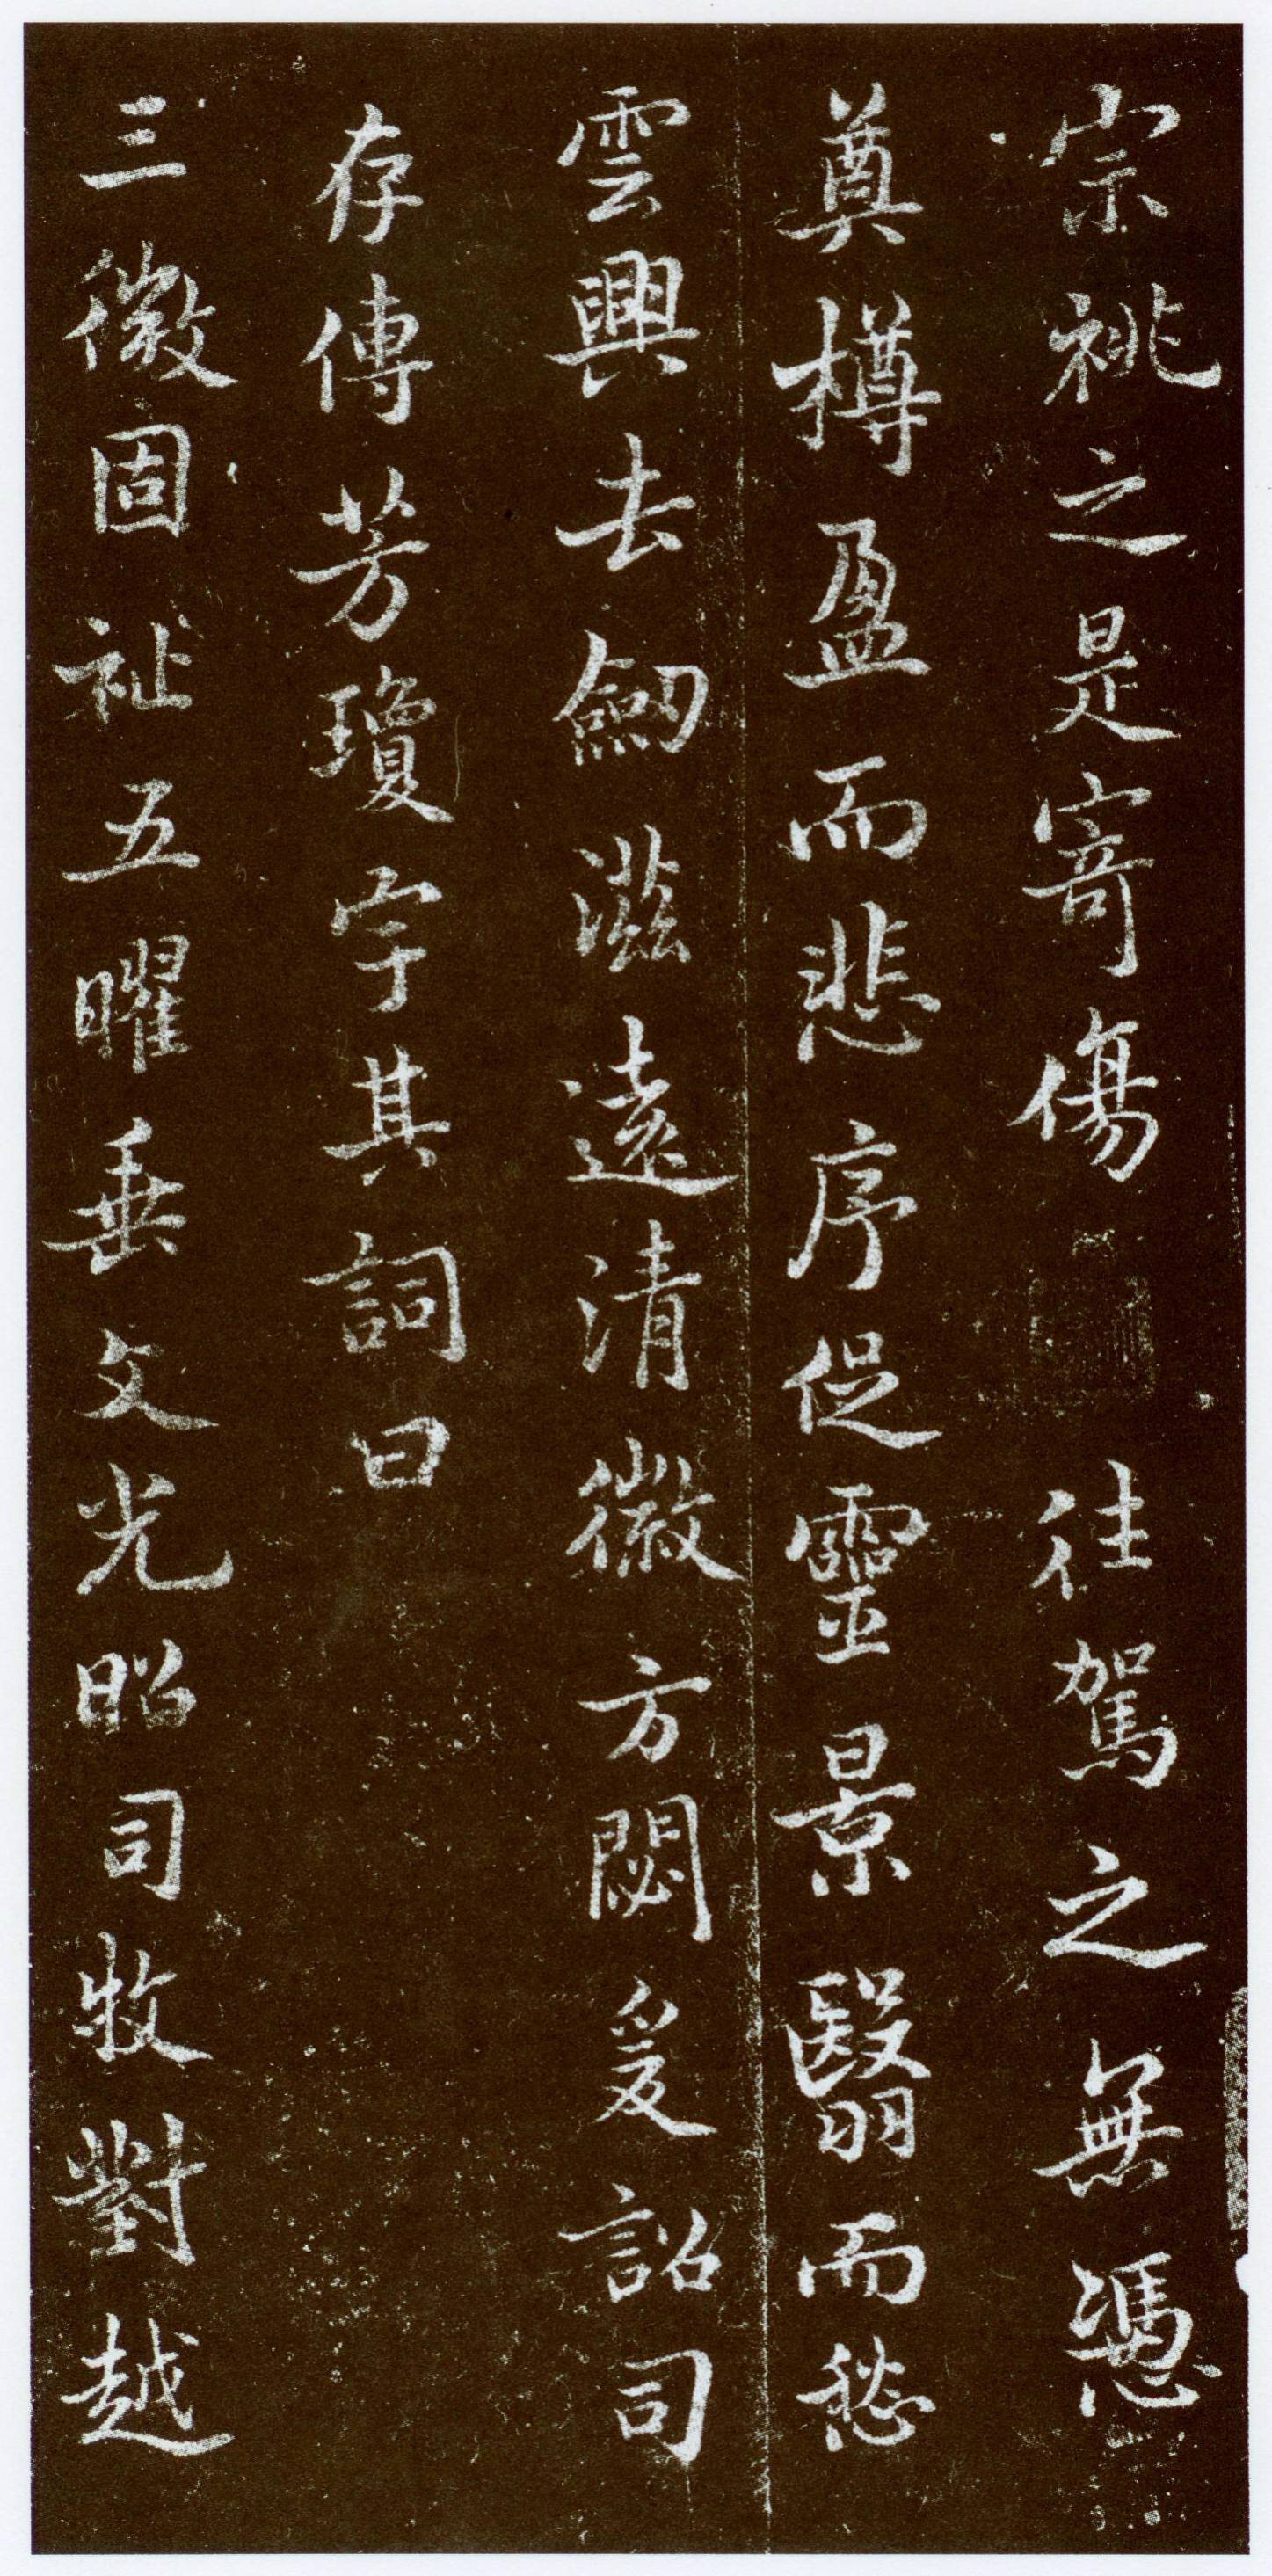 宗祧之是寄傷 往駕之無憑
奠樽盈而悲序促靈景翳而愁
雲興去劒滋遠清徽方閟爰詔司
存傳芳瓊字其詞曰
三徽固祉五曜垂文光昭司牧對越